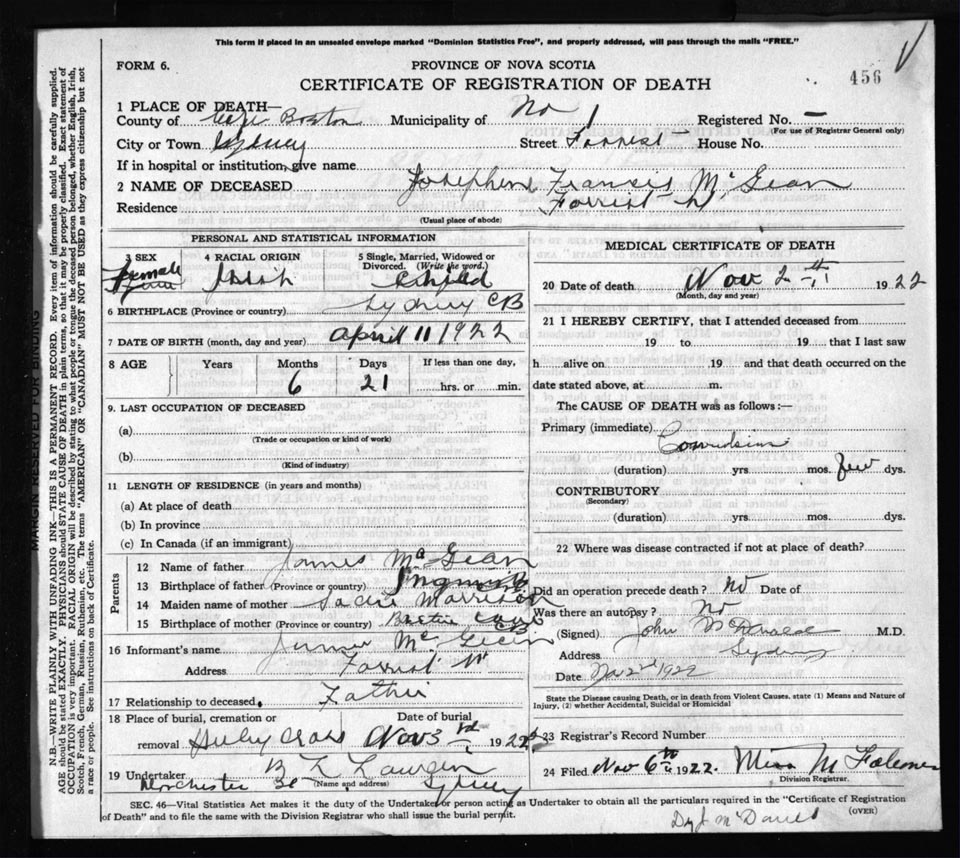 This form if placed in an unsealed envelope marked "Dominion Statistics Free", and properly addressed, will pass through the mails "FREE."
FORM 6.
PROVINCE OF NOVA SCOTIA
456
CERTIFICATE OF REGISTRATION OF DEATH
1 PLACE OF DEATH—
County of Cape Breton Municipality of No Registered No. —
(For use of Registrar General only)
City or Town Sydney Street Forrest House No.
If in hospital or institution, give name
2 NAME OF DECEASED Francis Mc Gean
Residence Forrest
(Usual place of abode)
PERSONAL AND STATISTICAL INFORMATION
3 SEX Female
4 RACIAL ORIGIN Irish
5 Single, Married, Widowed or Divorced. (Write the word.)
6 BIRTHPLACE (Province or country) Sydney CB
7 DATE OF BIRTH (month, day and year) April 11 1922
8 AGE Years Months Days If less than one day,
6 21 hrs. or min.
9. LAST OCCUPATION OF DECEASED
(a)
(Trade or occupation or kind of work)
(b)
(Kind of industry)
11 LENGTH OF RESIDENCE (in years and months)
(a) At place of death
(b) In province
(c) In Canada (if an immigrant)
Parents
12 Name of father James Mc Gean
13 Birthplace of father (Province or country)
14 Maiden name of mother Sadie Morrison
15 Birthplace of mother (Province or country) CB
16 Informant's name James Mc Gean
Address Forrest St
17 Relationship to deceased. Father
18 Place of burial, cremation or removal Holy Cross
Date of burial Nov 3rd 1922
19 Undertaker
(Name and address)
Dorchester St Sydney
MEDICAL CERTIFICATE OF DEATH
20 Date of death Nov 2 1922
(Month, day and year)
21 I HEREBY CERTIFY, that I attended deceased from
19 to 19 that I last saw
h alive on 19 and that death occurred on the
date stated above, at m.
The CAUSE OF DEATH was as follows:—
Primary (immediate) Convulsions
(duration) yrs. mos. few dys.
CONTRIBUTORY
(Secondary)
(duration) yrs. mos. dys.
22 Where was disease contracted if not at place of death?
Did an operation precede death? No Date of
Was there an autopsy? No
(Signed) John McDonald M.D.
Address Sydney
Date Nov 2nd 1922
State the Disease causing Death, or in death from Violent Causes, state (1) Means and Nature of
Injury, (2) whether Accidental, Suicidal or Homicidal
23 Registrar's Record Number
24 Filed Nov 6th 1922. Miss M
Division Registrar.
SEC. 46—Vital Statistics Act makes it the duty of the Undertaker or person acting as Undertaker to obtain all the particulars required in the "Certificate of Registration
of Death" and to file the same with the Division Registrar who shall issue the burial permit.
(OVER)
MARGIN RESERVED FOR BINDING
N.B.—WRITE PLAINLY WITH UNFADING INK—THIS IS A PERMANENT RECORD. Every item of information should be carefully supplied.
AGE should be stated EXACTLY. PHYSICIANS should STATE CAUSE OF DEATH in plain terms, so that it may be properly classified. Exact statement of
OCCUPATION is very important. RACIAL ORIGIN will be described by stating to what people or tongue the deceased person belonged, whether English, Irish,
Scotch, French, German, Russian, Ruthenian, etc. The terms "AMERICAN" OR "CANADIAN" MUST NOT BE USED as they express citizenship but not
a race or people. See instructions on back of Certificate.